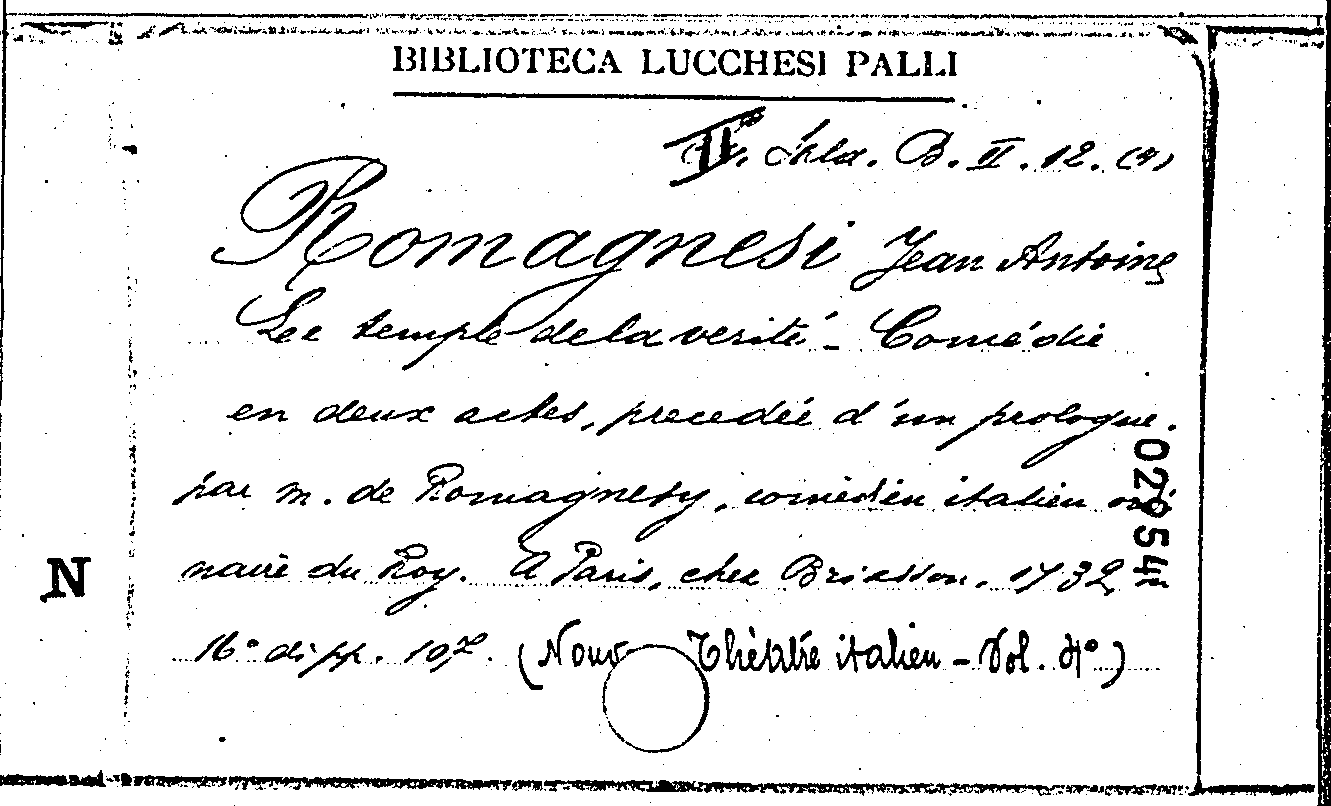 BIBLIOTECA LUCCHESI PALLI
II. Sala. B. II. 12. (4)
Romagnesi Jean Antoine
Le temple de la verité - Comédie
en deux actes, precedée d'un prologue.
par m. de Romagnesy, comédien italien
naire du Roy. A Paris, chez Briasson. 1732
16° di pp. 107. (Nouv Théâtre italien - Vol. 4°)
02954
N